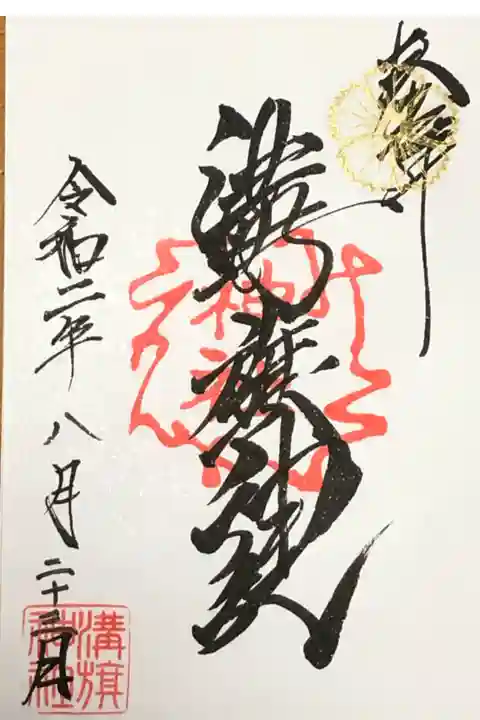 奉拝
溝旗神社
神社
令和二年八月二十三日
溝旗
神社